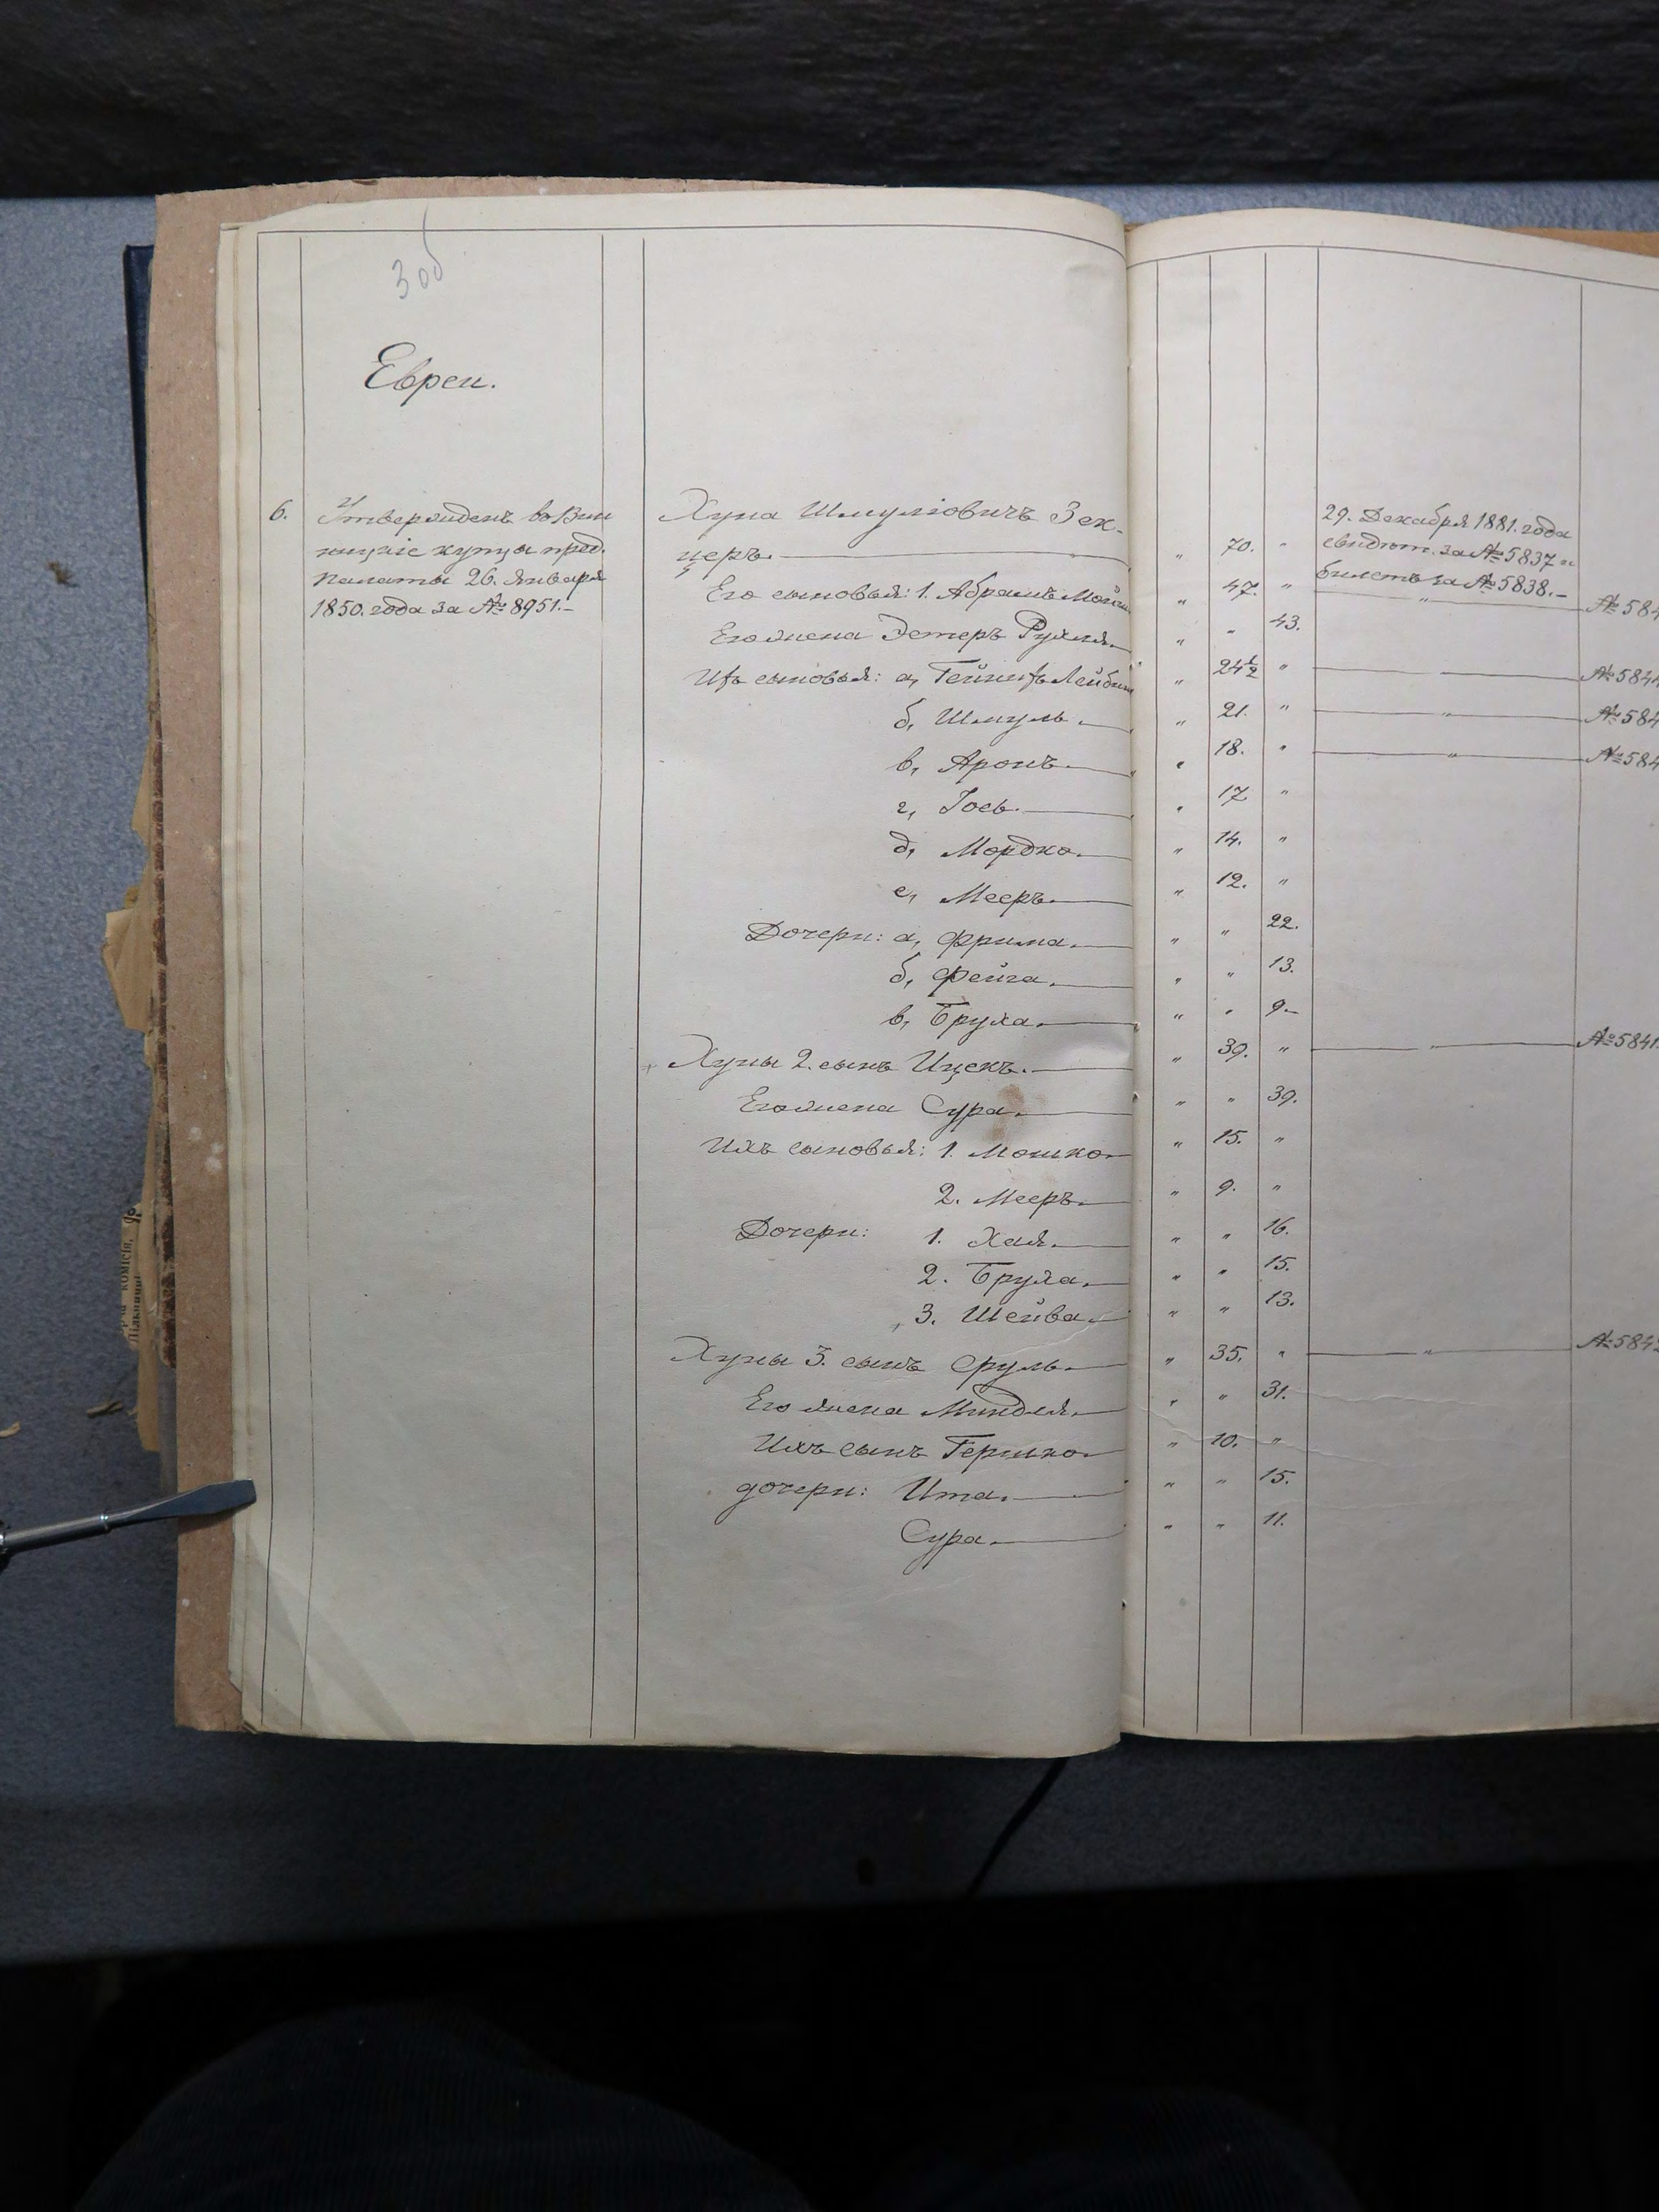 3 об
Евреи.
6. Утвержденъ въ Вин
ницкіе купцы пред.
Палаты 26. Января
1850. года за № 8951.-
Хуна Шмуліовичъ Зек-
церъ. " 70. " 29. Декабря 1881. года
свидѣт. за № 5837 и
билетъ за № 5838.-
Его сыновья: 1. Абрамъ " 47. " " № 584
Его жена Эстеръ " " 43.
Ихъ сыновья: а, " 24½ " № 584
б, Шмуль. " 21. " " № 584
в, Аронъ. " 18. " " № 584
г, Іось. " 17 "
д, Мордко. " 14. "
е, Мееръ. " 12. "
Дочери: а, Фрима. " " 22.
б, Фейга. " " 13.
в, Бруха. " " 9.-
Хуны 2. сынъ Ицекъ. " 39. " " № 5841.
Его жена Сура. " " 39.
Ихъ сыновья: 1. Мошко " 15. "
2. Мееръ. " 9. "
Дочери: 1. Хая. " " 16.
2. Бруха. " " 15.
3. Шейва. " " 13.
Хуны 3. сынъ Сруль. " 35. " " № 584
Его жена Миндля. " " 31.
Ихъ сынъ Гершко " 10. "
дочери: Ита. " " 15.
Сура. " " 11.
комісія,